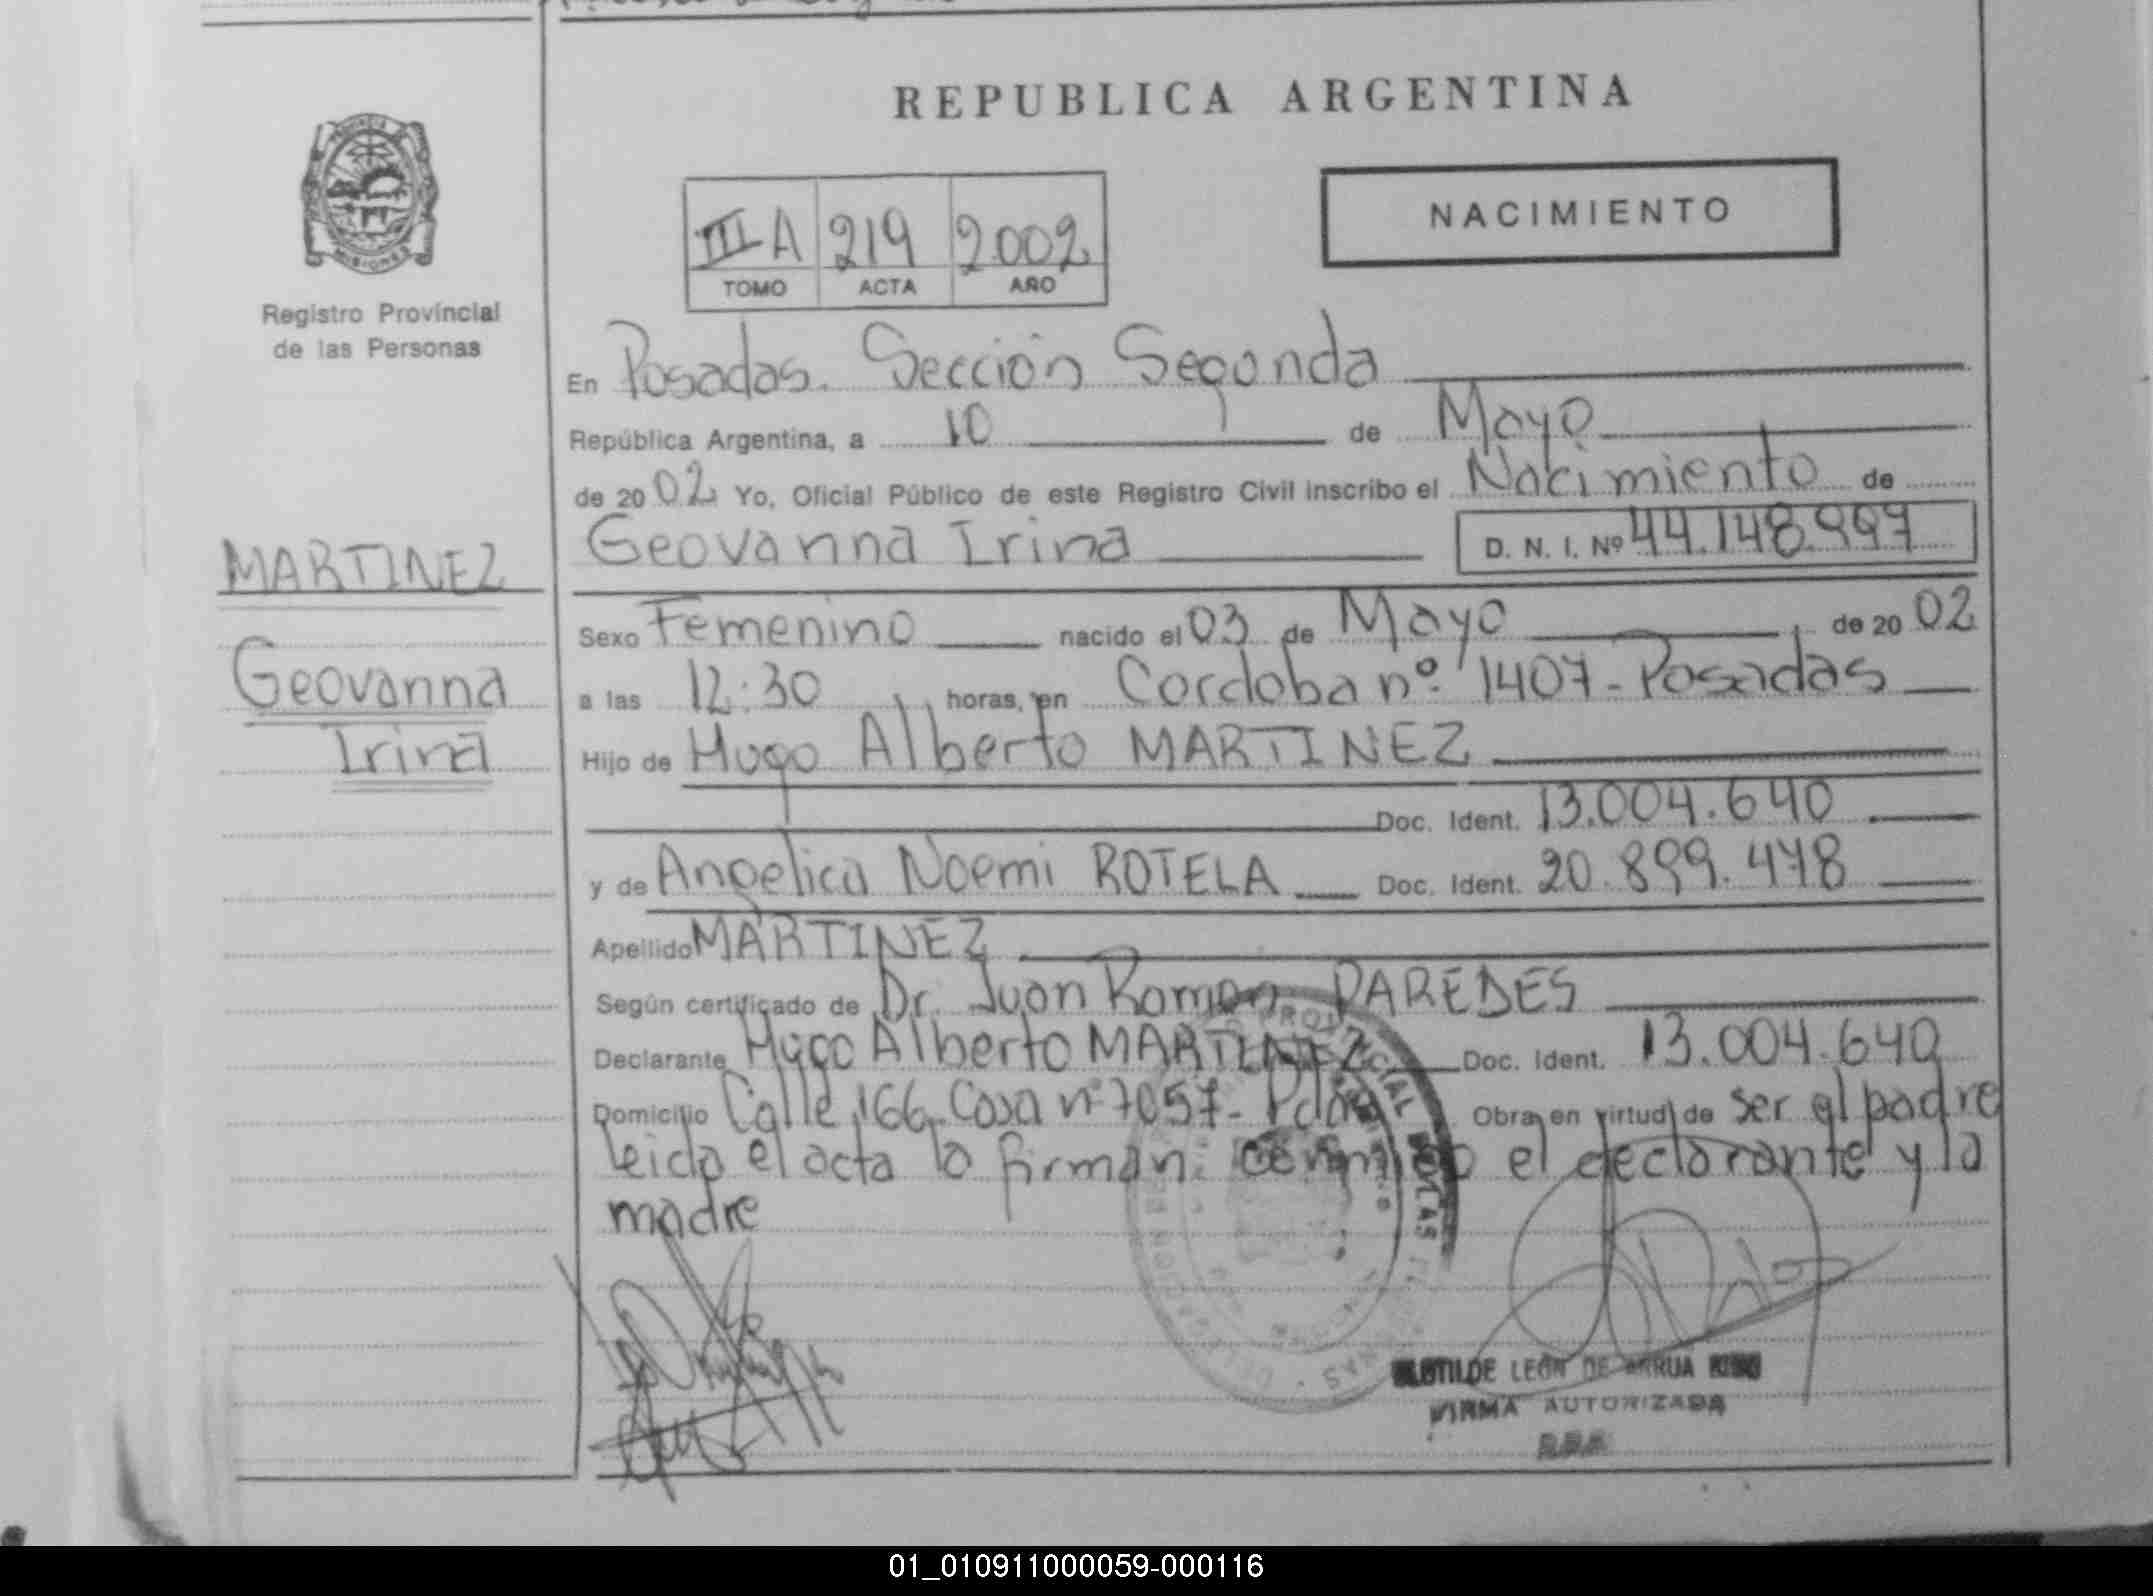 REPUBLICA ARGENTINA
NACIMIENTO
III A 219 2002
TOMO ACTA AÑO
PROVINCIA DE
MISIONES
Registro Provincial
de las Personas
MARTINEZ
Geovanna
Irina
En Posadas. Sección Segunda
República Argentina, a 10 de Mayo
de 20 02 Yo, Oficial Público de este Registro Civil inscribo el Nacimiento de
Geovanna Irina D. N. I. Nº 44.148.997
Sexo Femenino nacido el 03 de Mayo de 20 02
a las 12:30 horas, en Cordoba nº 1407 - Posadas
Hijo de Hugo Alberto MARTINEZ
Doc. Ident. 13.004.640
y de Angelica Noemi ROTELA Doc. Ident. 20.899.478
Apellido MARTINEZ
Según certificado de Dr. Juan Ramon PAREDES
Declarante Hugo Alberto MARTINEZ Doc. Ident. 13.004.640
Domicilio Calle 166 Casa nº 7057 - Pdas Obra en virtud de ser el padre
leida el acta la firman conmigo el declarante y la
madre
CLOTILDE LEON DE ARRUA
FIRMA AUTORIZADA
01_010911000059-000116